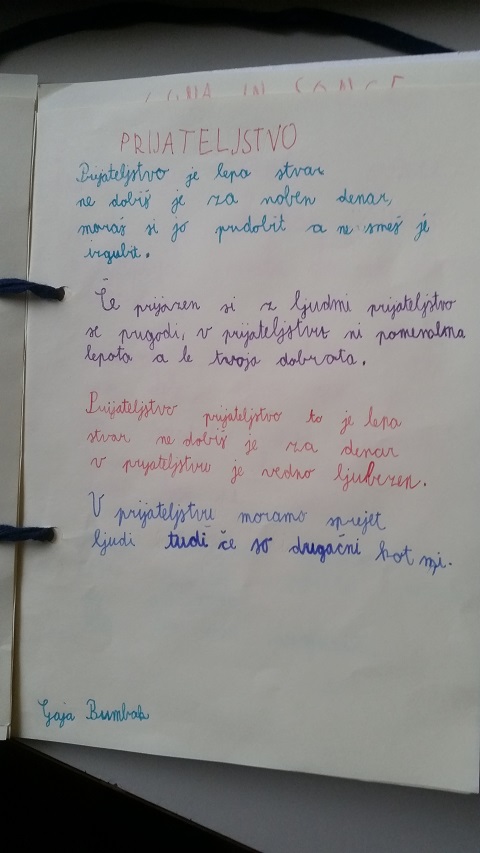 PRIJATELJSTVO
Prijateljstvo je lepa stvar
ne dobiš je za noben denar,
moraš si jo pridobit a ne smeš je
izgubit.
Če prijazen si z ljudmi prijateljstvo
se prigodi, v prijateljstvu ni pomembna
lepota a le tvoja dobrota.
Prijateljstvo prijateljstvo to je lepa
stvar ne dobiš je za denar
v prijateljstvu je vedno ljubezen.
V prijateljstvu moramo sprejet
ljudi tudi če so drugačni kot mi.
Gaja Bumbak